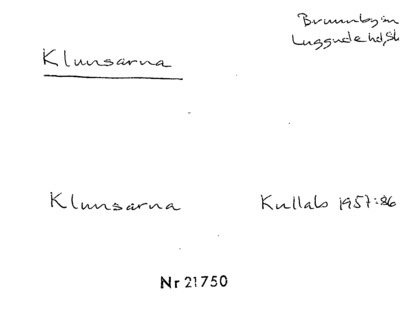 Brunnby sn
Luggude hd, Sk
Klunsarna
Klunsarna Kullab 1957:86
Nr 21750